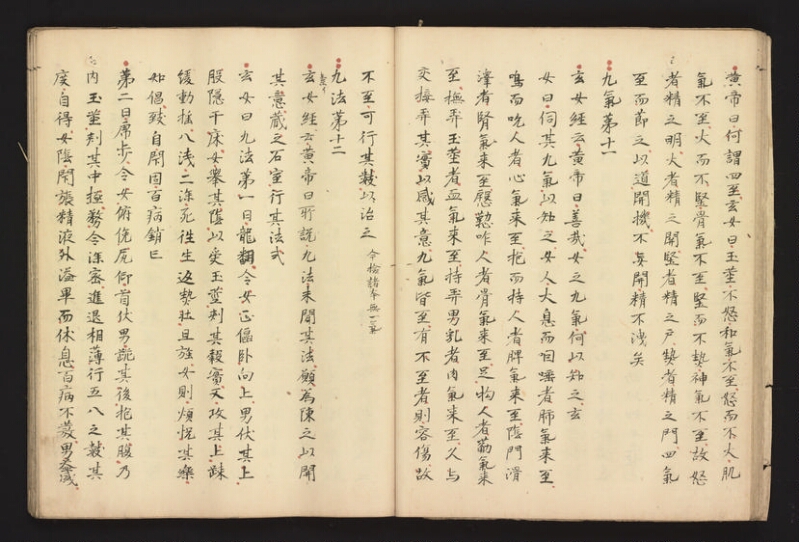 黄帝曰何謂四至玄女曰玉莖不怒和氣不至怒而不大肌
氣不至大而不堅骨氣不至堅而不熱神氣不至故怒
者精之明大者精之關堅者精之戶熱者精之門四氣
至而節之以道開機不妄開精不洩矣
九氣第十一
玄女經云黄帝曰善哉女之九氣何以知之玄
女曰伺其九氣以知之女人大息而咽唾者肺氣來至
鳴而吮人者心氣來至抱而持人者脾氣來至陰門滑
澤者腎氣來至慇懃咋人者骨氣來至足拘人者筋氣來
至撫弄玉莖者血氣來至持弄男乳者肉氣來至久与
交接弄其實以感其意九氣皆至有不至者則容傷故
不至可行其數以治之 今檢諸本無一氣
九法第十二
玄女經云黄帝曰所説九法未聞其法願為陳之以開
其意藏之石室行其法式
玄女曰九法第一曰龍翻令女正偃卧向上男伏其上
股隱于床女舉其陰以受玉莖刺其穀實又攻其上疎
緩動摇八淺二深死往生返熱壮且強女則煩悦其樂
如倡致自閇固百病銷亡
第二曰虎步令女俯俛尻仰首伏男跪其後抱其腹乃
内玉莖刺其中極務令深密進退相薄行五八之數其
度自得女陰閇張精液外溢畢而休息百病不發男益盛